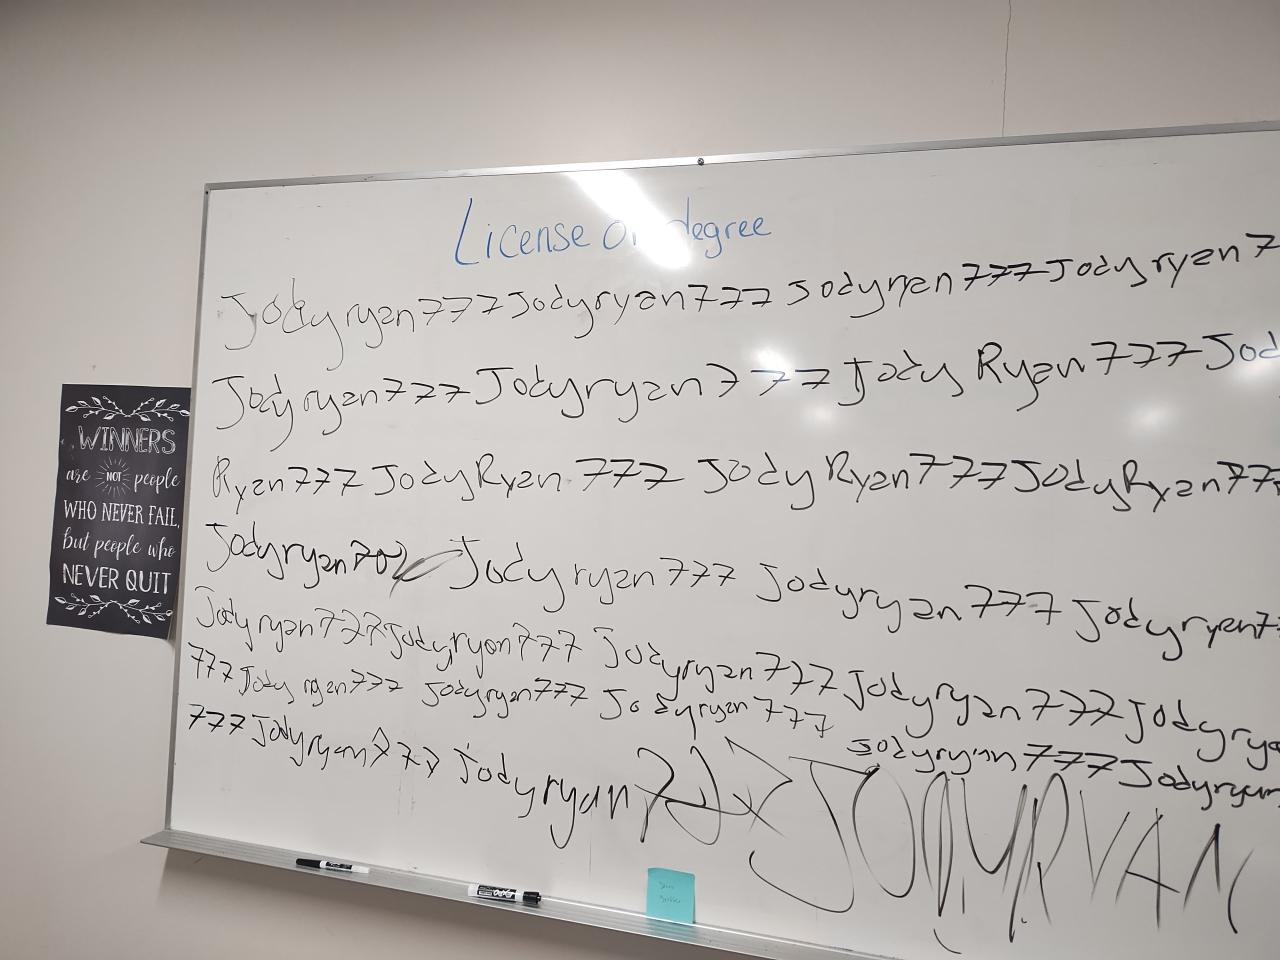 License or degree
Jodyryan777Jodyryan777 Jodyryan777Jodyryan7
Jodyryan777Jodyryan777 Jody Ryan777Jod
Ryan777 JodyRyan 777 JodyRyan777JodyRyan777
Jodyryan Jodyryan777 Jodyryan777 Jodyryan7
Jodyryan777Jodyryan777 Jodyryan777Jodyryan777Jodyrya
777Jodyryan777 Jodyryan777 Jodyryan777 Jodyryan777Jodyryan
777Jodyryan777 Jodyryan JODYRYAN
WINNERS
are NOT people
WHO NEVER FAIL,
but people who
NEVER QUIT
EXPO